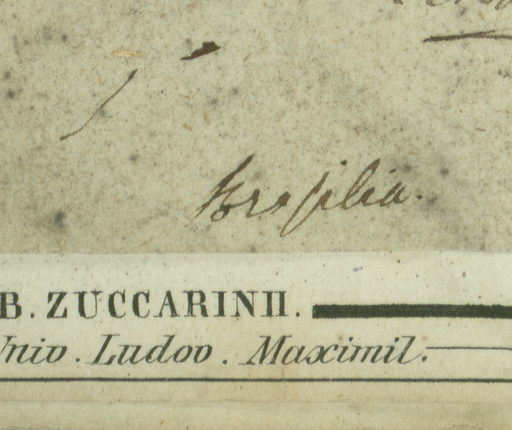 Brasilia.
B. ZUCCARINII.
Univ. Ludov. Maximil.